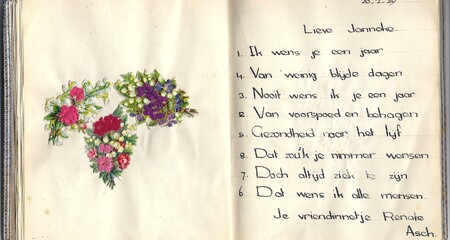 Lieve Janneke
1. Ik wens je een jaar
4. Van weinig blijde dagen
3. Nooit wens ik je een jaar
2. Van voorspoed en behagen
5. Gezondheid naar het lijf
8. Dat zou'k je nimmer wensen
7. Doch altijd ziek te zijn
6 Dat wens ik alle mensen.
Je vriendinnetje Renate
Asch.